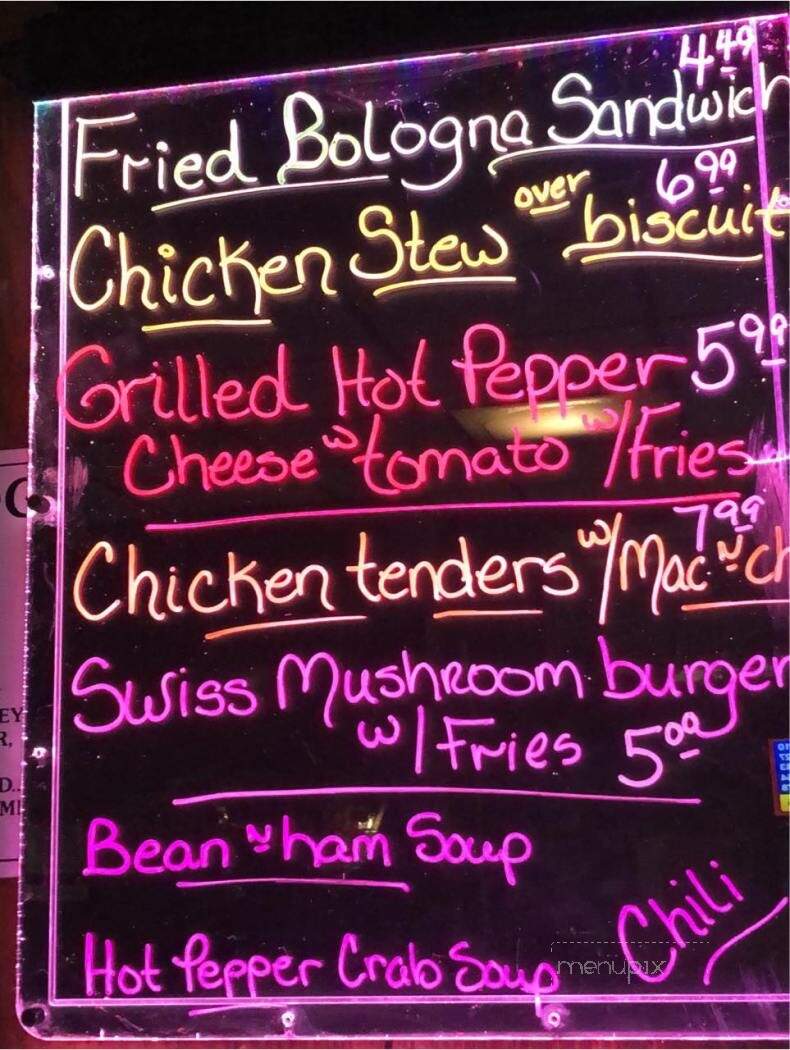 4.49
Fried Bologna Sandwich
6.99
Chicken Stew over biscuit
Grilled Hot Pepper 5.99
Cheese w tomato w/Fries
7.99
Chicken tenders w/Mac N ch
Swiss Mushroom burger
w/Fries 5.00
Bean N ham Soup
Chili
Hot Pepper Crab Soup
menupix